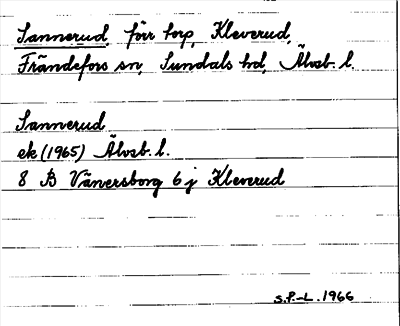 Sannerud, förr torp, Kleverud,
Frändefors sn, Sundals hd, Älvsb. l.
Sannerud
ek (1965) Älvsb. l.
8 B Vänersborg 6 j Kleverud
S.F.-L. 1966